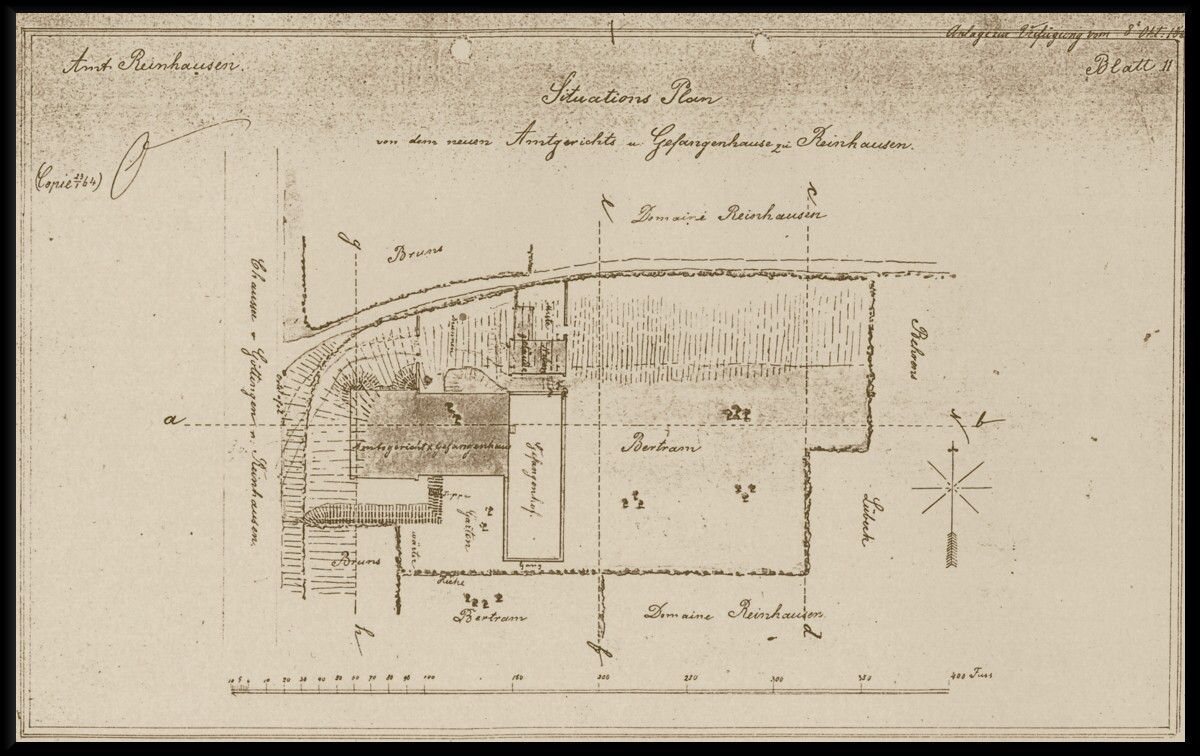 Anlage zur Verfügung vom 8t Okt. 18
Amt Reinhausen.
Blatt 11
Situations Plan
von dem neuen Amtgerichts u. Gefangenhause zu Reinhausen.
(Copie 23/1 64)
l
c
Domaine Reinhausen
g
Bruns
Chaussee v. Göttingen n. Reinhausen.
Behrens
a
b
Amtsgericht & Gefangenhaus
Gefangenhof.
Bertram
Treppe
Garten
Lübeck
Bruns
Gang
Hecke
Bertram
Domaine Reinhausen
h
f
d
10 5 0 10 20 30 40 50 60 70 80 90 100 150 200 250 300 350 400 Fuss